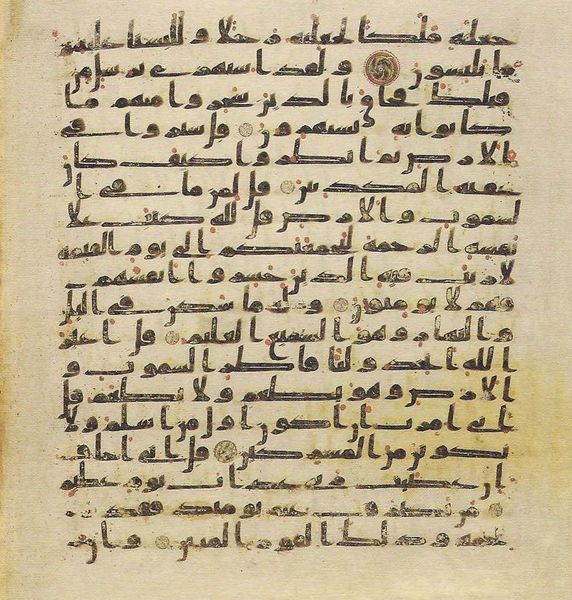 جعلنه ملكا لجعلنه رجلا و للبسنا عليهم
ما يلبسون ولقد استهزى برسل من
قبلك فحاق بالذين سخروا منهم ما
كانوا به يستهزون قل سيروا فى
الارض ثم انظروا كيف كان
عقبه المكذبين قل لمن ما فى ا
لسموت والارض قل لله كتب علا
نفسه الرحمة ليجمعنكم الى يوم القيمه
لا ريب فيه الذين خسروا انفسهم
فهم لا يومنون وله ما سكن فى اليل
والنهار وهو السميع العليم قل اغير
الله اتخذ وليا فاطر السموت و
الارض وهو يطعم ولا يطعم قل
انى امرت ان اكون اول من اسلم ولا
تكونن من المشركين قل انى اخاف
ان عصيت ربى عذاب يوم عظيم
من يصرف عنه يومئذ فقد ر
حمه وذلك الفوز المبين وان